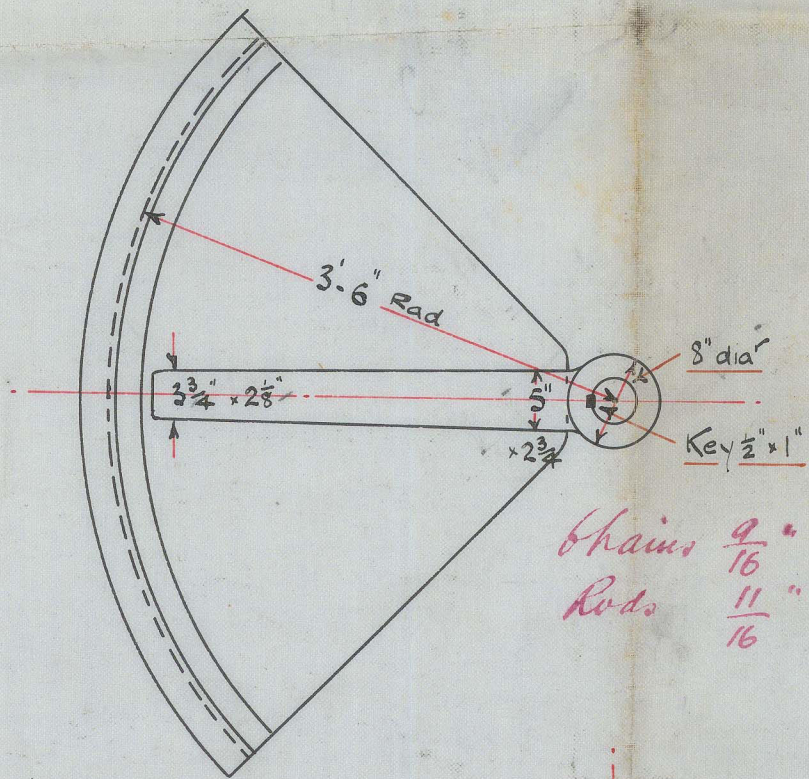 3'-6" Rad
8" dia^r
3 3/4" × 2 1/8"
5"
× 2 3/4
Key 1/2" × 1"
Chains 9/16"
Rods 11/16"